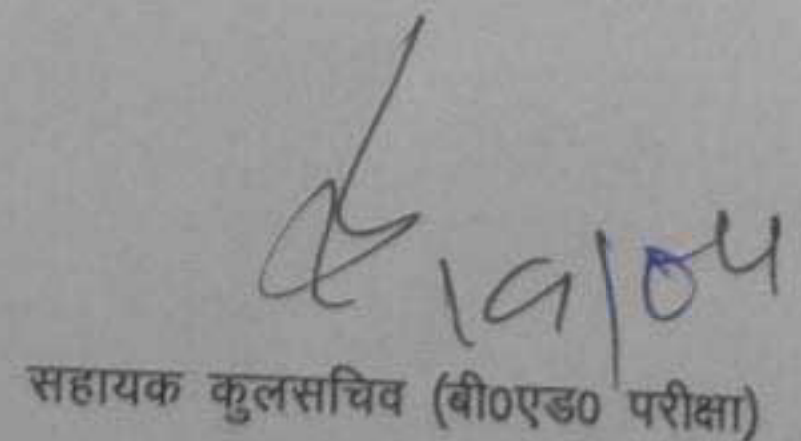 19/04
सहायक कुलसचिव (बी0एड0 परीक्षा)